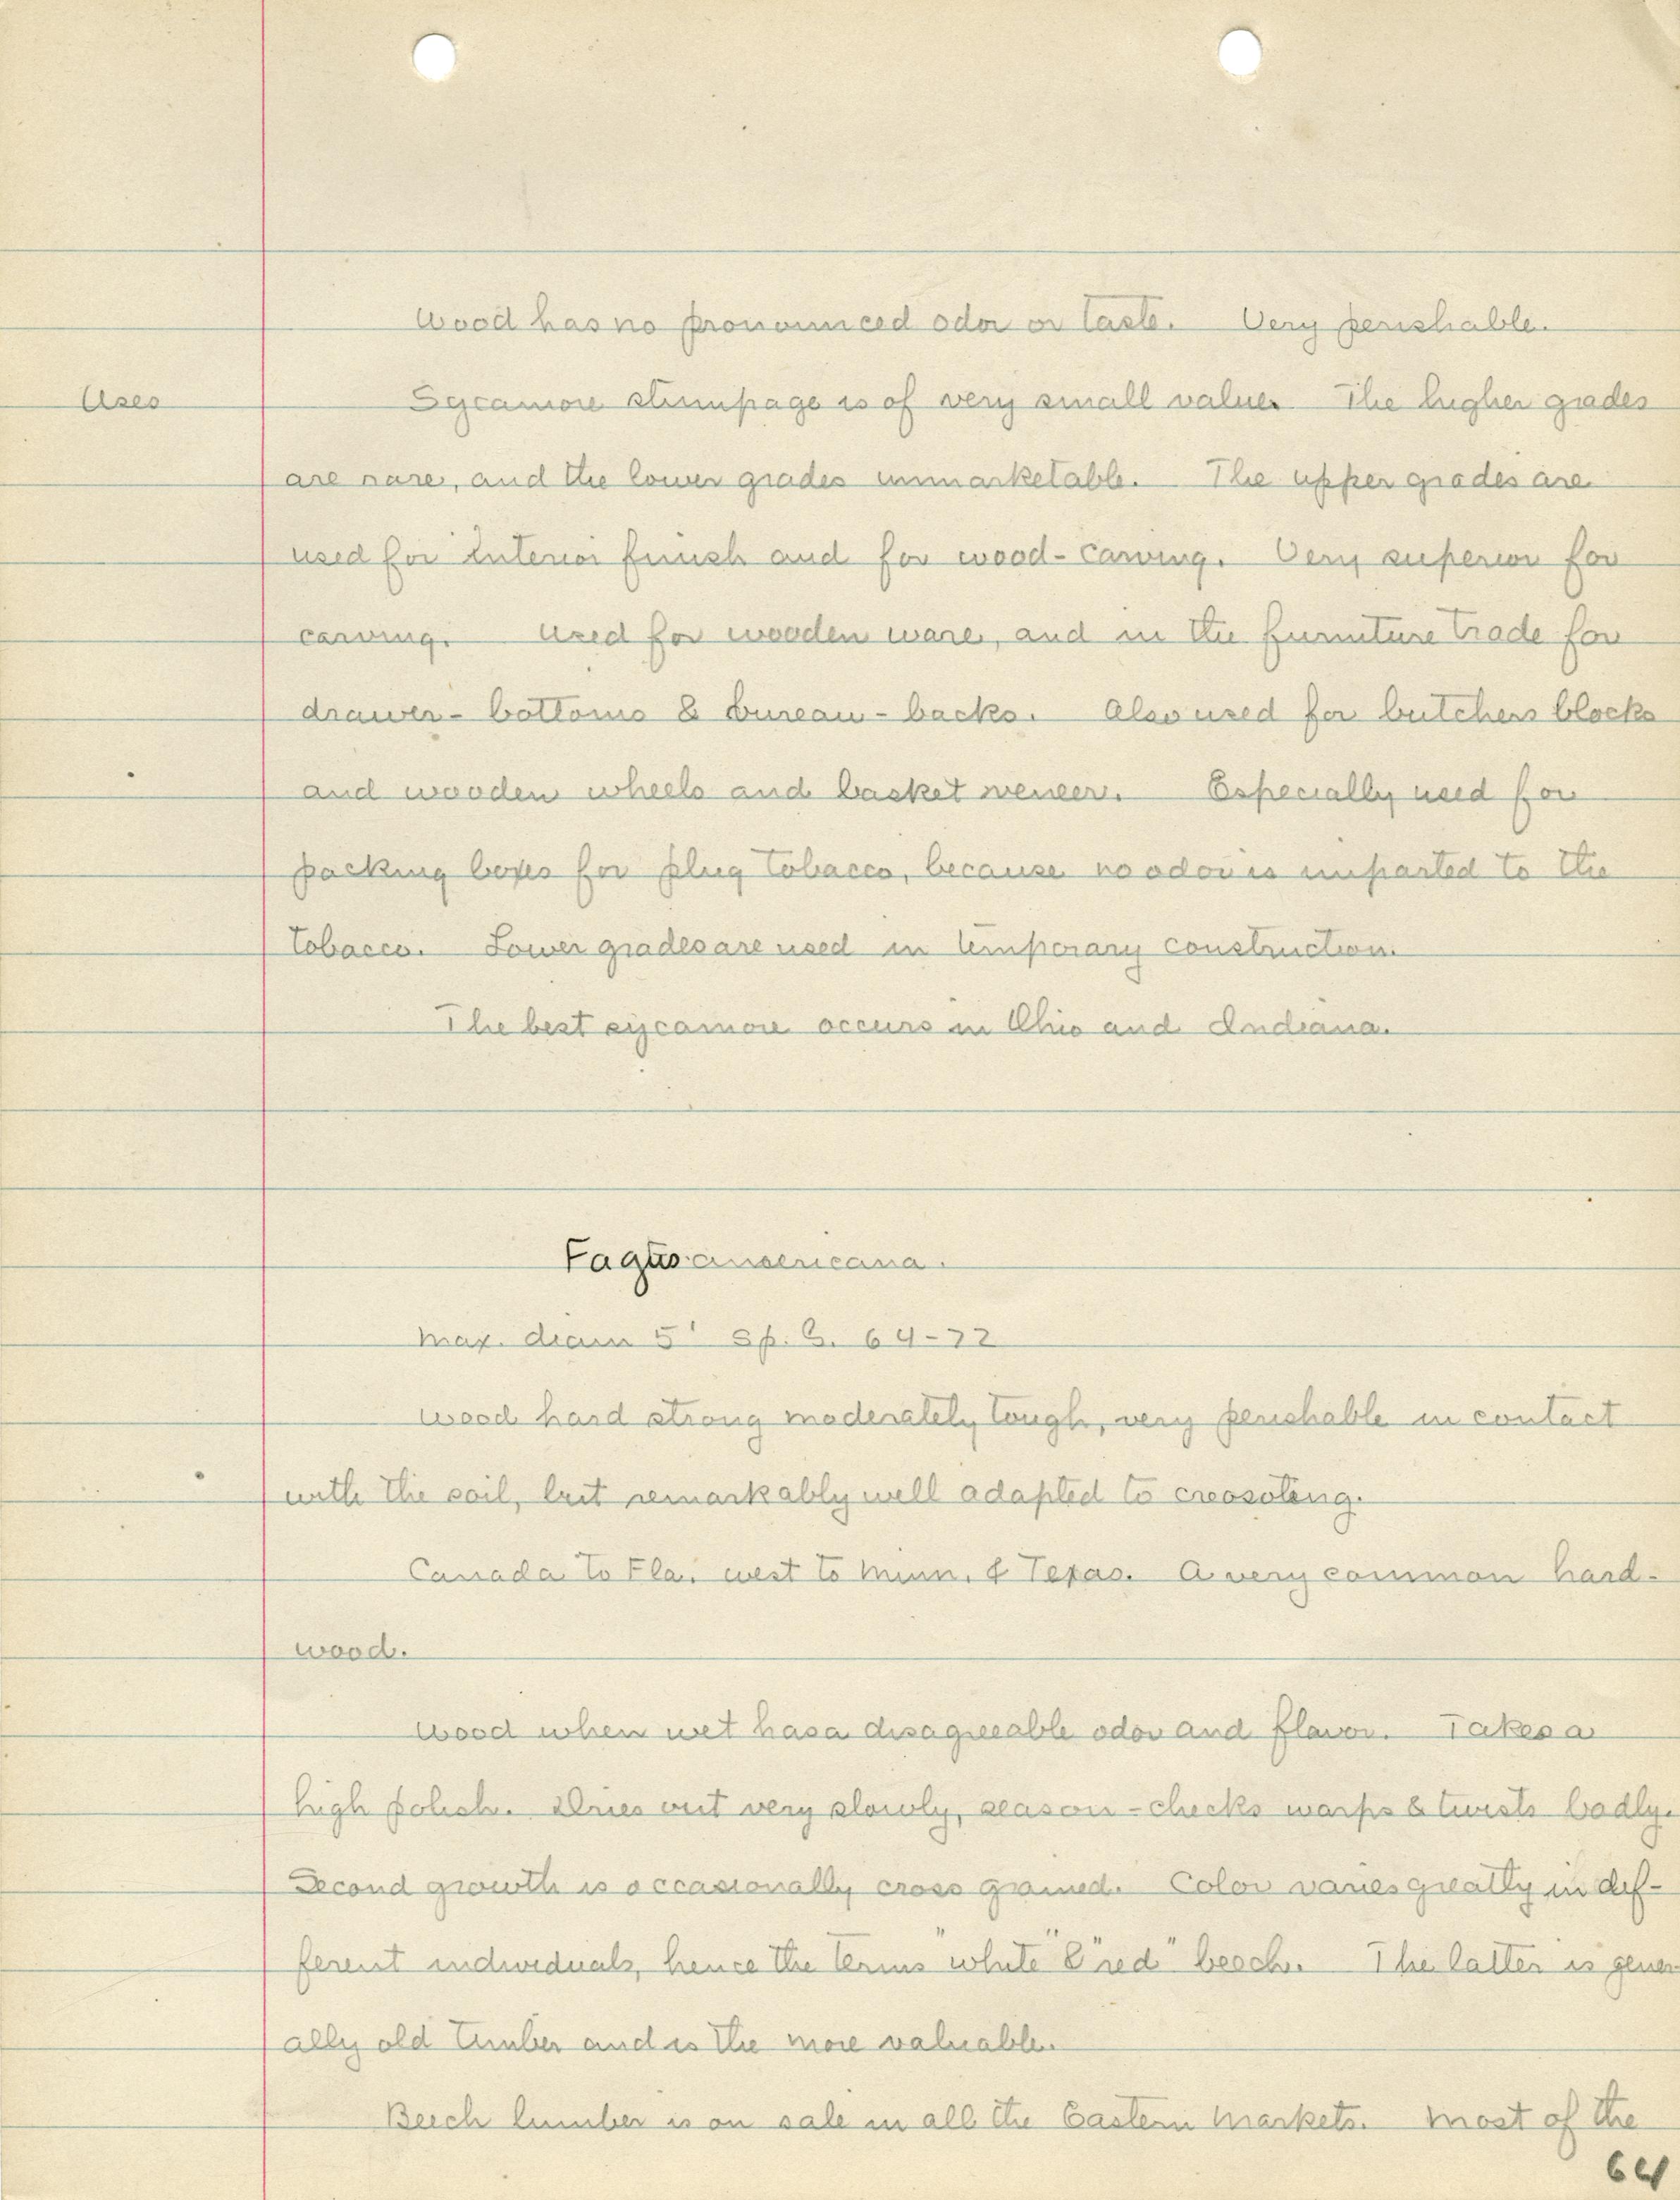 Wood has no pronounced odor or taste. Very perishable.
Uses Sycamore stumpage is of very small value. The higher grades
are rare, and the lower grades unmarketable. The upper grades are
used for interior finish and for wood-carving. Very superior for
carving. Used for wooden ware, and in the furniture trade for
drawer-bottoms & bureau-backs. Also used for butchers blocks
and wooden wheels and basket veneer. Especially used for
packing boxes for plug tobacco, because no odor is imparted to the
tobacco. Lower grades are used in temporary construction.
The best sycamore occurs in Ohio and Indiana.
Fagus americana.
Max. diam 5' Sp. G. 64-72
Wood hard strong moderately tough, very perishable in contact
with the soil, but remarkably well adapted to creosoting.
Canada to Fla. west to Minn. & Texas. A very common hard-
wood.
Wood when wet has a disagreeable odor and flavor. Takes a
high polish. Dries out very slowly, season-checks warps & twists badly.
Second growth is occasionally cross grained. Color varies greatly in dif-
ferent individuals, hence the terms "white" & "red" beech. The latter is gener-
ally old timber and is the more valuable.
Beech lumber is on sale in all the Eastern Markets. Most of the
64